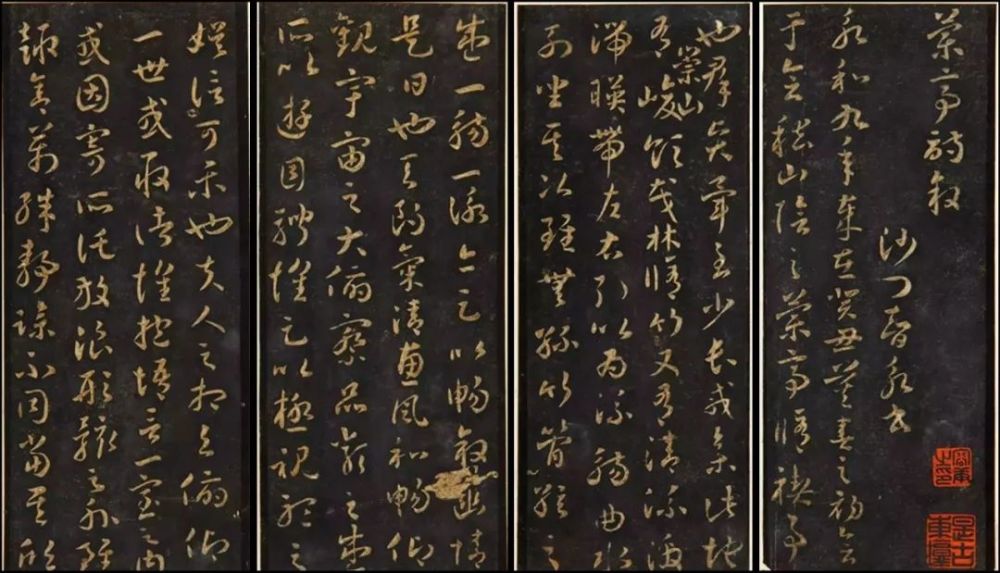 蘭亭詩敘
沙門智永書
永和九年歲在癸丑暮春之初會
于會稽山陰之蘭亭脩禊事
也群賢畢至少長咸集此地
有崇山峻領茂林脩竹又有清流激
湍暎帶左右引以為流觴曲水
列坐其次雖無絲竹管絃之
盛一觴一詠亦足以暢敘幽情
是日也天朗氣清惠風和暢仰
觀宇宙之大俯察品類之盛
所以遊目騁懷足以極視聽之
娛信可樂也夫人之相與俯仰
一世或取諸懷抱悟言一室之內
或因寄所託放浪形骸之外雖
趣舍萬殊靜躁不同當其欣